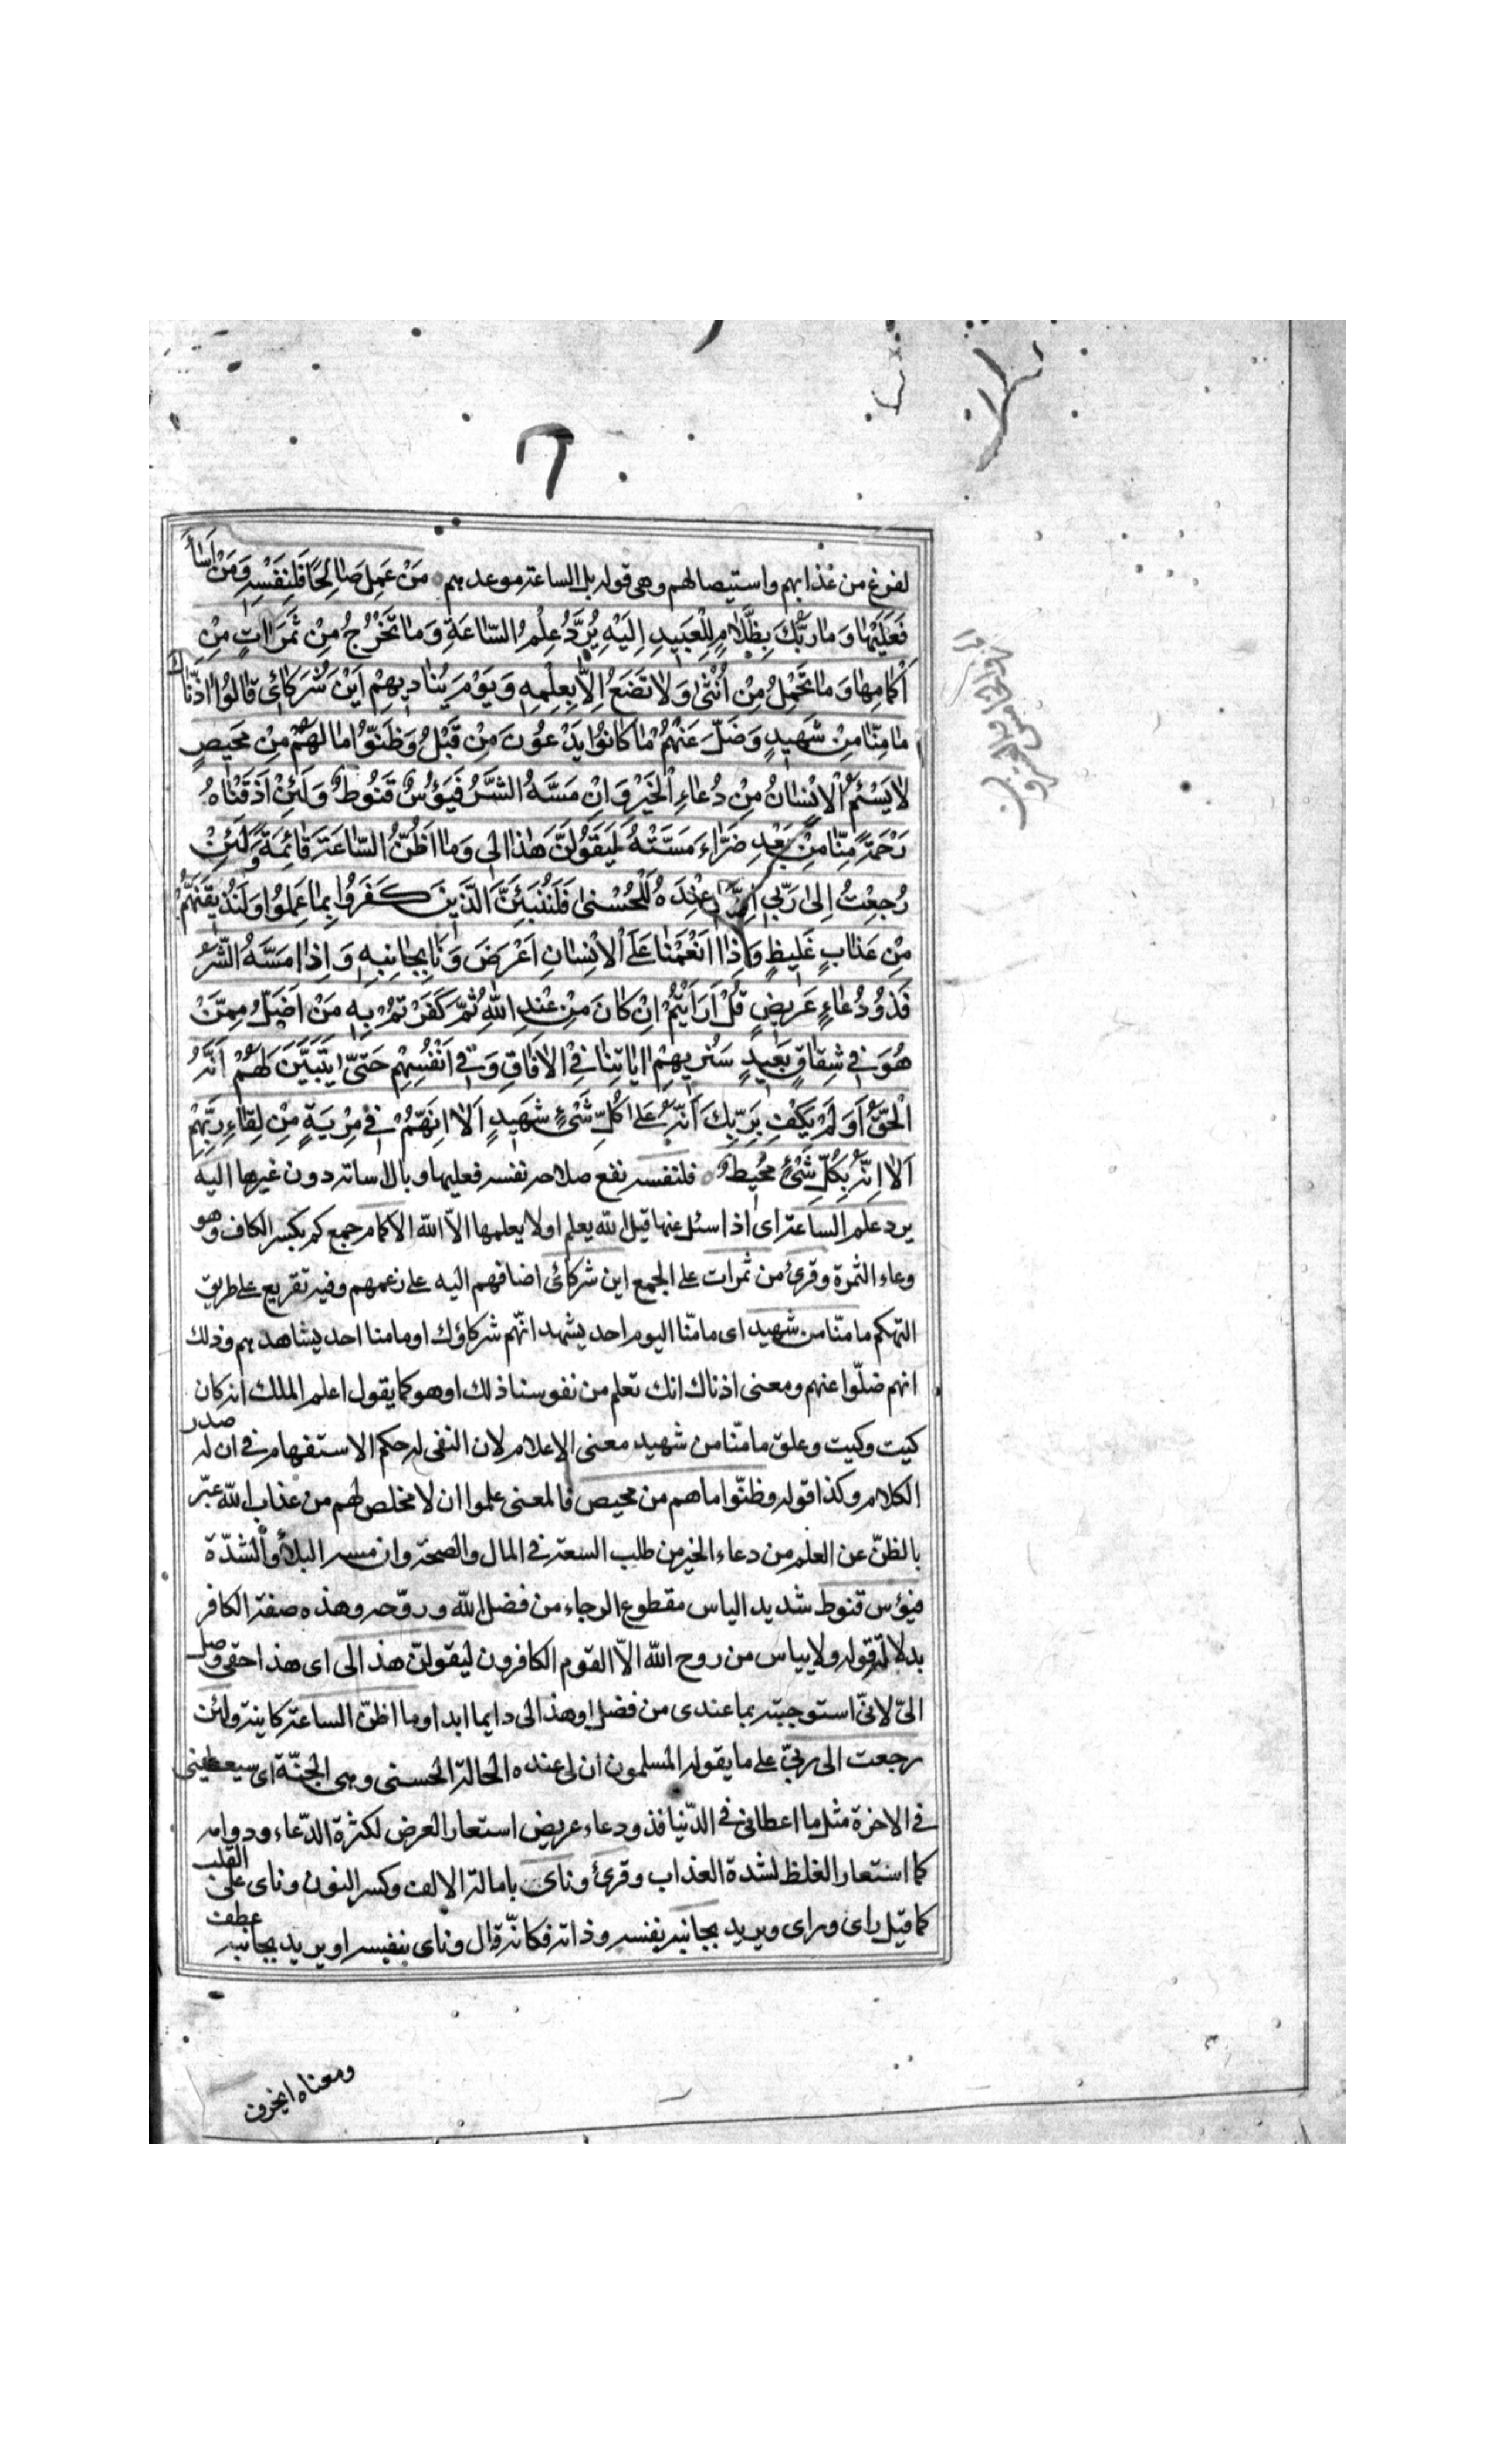 لفرغ من عذابهم واستيصالهم وهى قوله بل الساعة موعدهم مَنْ عَمِلَ صَالِحًا فَلِنَفْسِهِ وَمَنْ اَسَاءَ
فَعَلَيْهَا وَمَا رَبُّكَ بِظَلَّامٍ لِلْعَبِيدِ اِلَيْهِ يُرَدُّ عِلْمُ السَّاعَةِ وَمَا تَخْرُجُ مِنْ ثَمَرَاتٍ مِنْ
اَكْمَامِهَا وَمَا تَحْمِلُ مِنْ اُنْثَى وَلَا تَضَعُ اِلَّا بِعِلْمِهِ وَيَوْمَ يُنَادِيهِمْ اَيْنَ شُرَكَائِى قَالُوا اذَنَّاكَ
مَا مِنَّا مِنْ شَهِيدٍ وَضَلَّ عَنْهُمْ مَا كَانُوا يَدْعُونَ مِنْ قَبْلُ وَظَنُّوا مَا لَهُمْ مِنْ مَحِيصٍ
لَا يَسْئَمُ الْاِنْسَانُ مِنْ دُعَاءِ الْخَيْرِ وَاِنْ مَسَّهُ الشَّرُّ فَيَؤُسٌ قَنُوطٌ وَلَئِنْ اَذَقْنَاهُ
رَحْمَةً مِنَّا مِنْ بَعْدِ ضَرَّاءَ مَسَّتْهُ لَيَقُولَنَّ هَذَا لِى وَمَا اَظُنُّ السَّاعَةَ قَائِمَةً وَلَئِنْ
رُجِعْتُ اِلَى رَبِّى اِنَّ لِى عِنْدَهُ لَلْحُسْنَى فَلَنُنَبِّئَنَّ الَّذِينَ كَفَرُوا بِمَا عَمِلُوا وَلَنُذِيقَنَّهُمْ
مِنْ عَذَابٍ غَلِيظٍ وَاِذَا اَنْعَمْنَا عَلَى الْاِنْسَانِ اَعْرَضَ وَنَا بِجَانِبِهِ وَاِذَا مَسَّهُ الشَّرُّ
فَذُو دُعَاءٍ عَرِيضٍ قُلْ اَرَاَيْتُمْ اِنْ كَانَ مِنْ عِنْدِ اللّٰهِ ثُمَّ كَفَرْتُمْ بِهِ مَنْ اَضَلُّ مِمَّنْ
هُوَ فِى شِقَاقٍ بَعِيدٍ سَنُرِيهِمْ ايَاتِنَا فِى الْافَاقِ وَفِى اَنْفُسِهِمْ حَتَّى يَتَبَيَّنَ لَهُمْ اَنَّهُ
الْحَقُّ اَوَلَمْ يَكْفِ بِرَبِّكَ اَنَّهُ عَلَى كُلِّ شَىْءٍ شَهِيدٍ اَلَا اِنَّهُمْ فِى مِرْيَةٍ مِنْ لِقَاءِ رَبِّهِمْ
اَلَا اِنَّهُ بِكُلِّ شَىْءٍ مُحِيطٌ فلنفسه نفع صلاحه نفسه فعليها وبال اساته دون غيرها اليه
يرد علم الساعة اى اذا سئل عنها قيل الله يعلم او لا يعلمها الّا الله الاكمام جمع كم بكسر الكاف وهو
وعاء الثمرة وقرئ من ثمرات على الجمع اين شركائى اضافهم اليه على زعمهم وفيه تقريع على طريق
التهكم ما منّا من شهيد اى ما منّا اليوم احد يشهد انّهم شركاؤك او ما منا احد يشاهدهم وذلك
انهم ضلّوا عنهم ومعنى اذناك انك تعلم من نفوسنا ذلك او هو كما يقول اعلم الملك انه كان
كيت وكيت وعلق ما منّا من شهيد معنى الاعلام لان النفى له حكم الاستفهام فى ان له صدر
الكلام وكذا قوله وظنّوا ما هم من محيص فالمعنى علموا ان لا مخلص لهم من عذاب الله عبّر
بالظنّ عن العلم من دعاء الخير من طلب السعة فى المال والصحة وان مسه البلاء والشدّة
فيؤس قنوط شديد الياس مقطوع الرجاء من فضل الله وروّحه وهذه صفة الكافر
بدلالة قوله ولا يياس من روح الله الّا القوم الكافرون ليقولنّ هذا لى اى هذا حقى وصل
الىّ لانّى استوجبته بما عندى من فضل او هذا لى دايما ابدا وما اظنّ الساعة كاينة ولئن
رجعت الى ربّى على ما يقوله المسلمون ان لى عنده الحالة الحسنى وهى الجنّة اى سيعطينى
فى الاخرة مثل ما اعطانى فى الدّنيا فذو دعاء عريض استعار العرض لكثرة الدّعاء ودوامه
كما استعار الغلظ لشدة العذاب وقرئ وناى بامالة الالف وكسر النون وناى على القلب
كما قيل راى وراى ويريد بجانبه نفسه وذاته فكانّه قال وناى بنفسه او يريد بجانبه عطفه
ومعناه انحرف